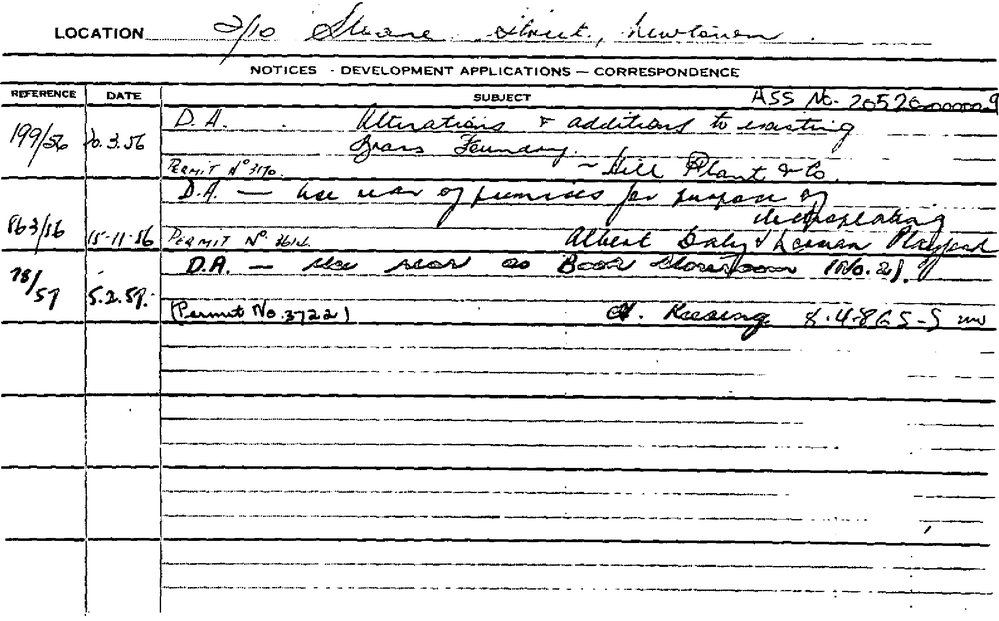 LOCATION 2/10 Street, Newtown.
NOTICES - DEVELOPMENT APPLICATIONS — CORRESPONDENCE
REFERENCE DATE SUBJECT ASS No.
199/56 20.3.56 D.A. Alterations & additions to existing
Brass Foundry.
PERMIT Nº 3170. ~ Hill Plant & Co.
D.A. — Use rear of premises for purpose of
electroplating
863/56 15-11-56 PERMIT Nº Albert Daly &
78/57 5.2.57. D.A. — Use rear as Book Storeroom (No. 2).
(Permit No. 3722) Keesing